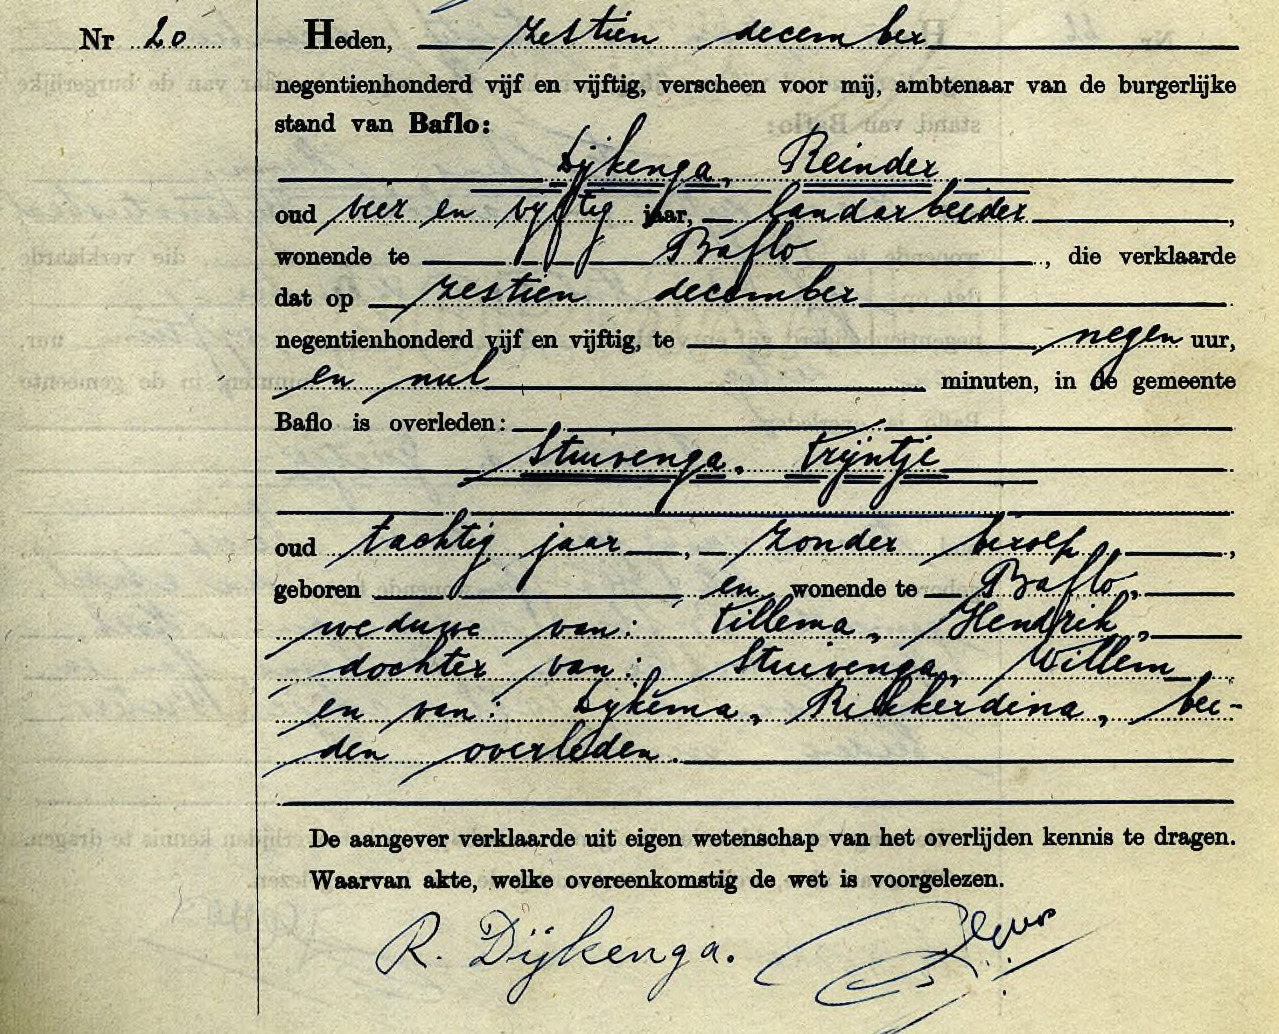 Nr 20 Heden, zestien december
negentienhonderd vijf en vijftig, verscheen voor mij, ambtenaar van de burgerlijke
stand van Baflo:
Dijkenga, Reinder,
oud vier en vijftig jaar, landarbeider,
wonende te Baflo, die verklaarde
dat op zestien december
negentienhonderd vijf en vijftig, te negen uur,
en nul minuten, in de gemeente
Baflo is overleden:
Stuivenga, Trijntje
oud tachtig jaar, zonder beroep,
geboren en wonende te Baflo,
weduwe van: Tillema, Hendrik,
dochter van: Stuivenga, Willem
en van: Dijkema, Rikkerdina, bei-
den overleden.
De aangever verklaarde uit eigen wetenschap van het overlijden kennis te dragen.
Waarvan akte, welke overeenkomstig de wet is voorgelezen.
R. Dijkenga.